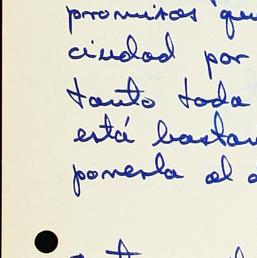 promisas qu
ciudad por
tanto toda
está bastan
ponerla al d